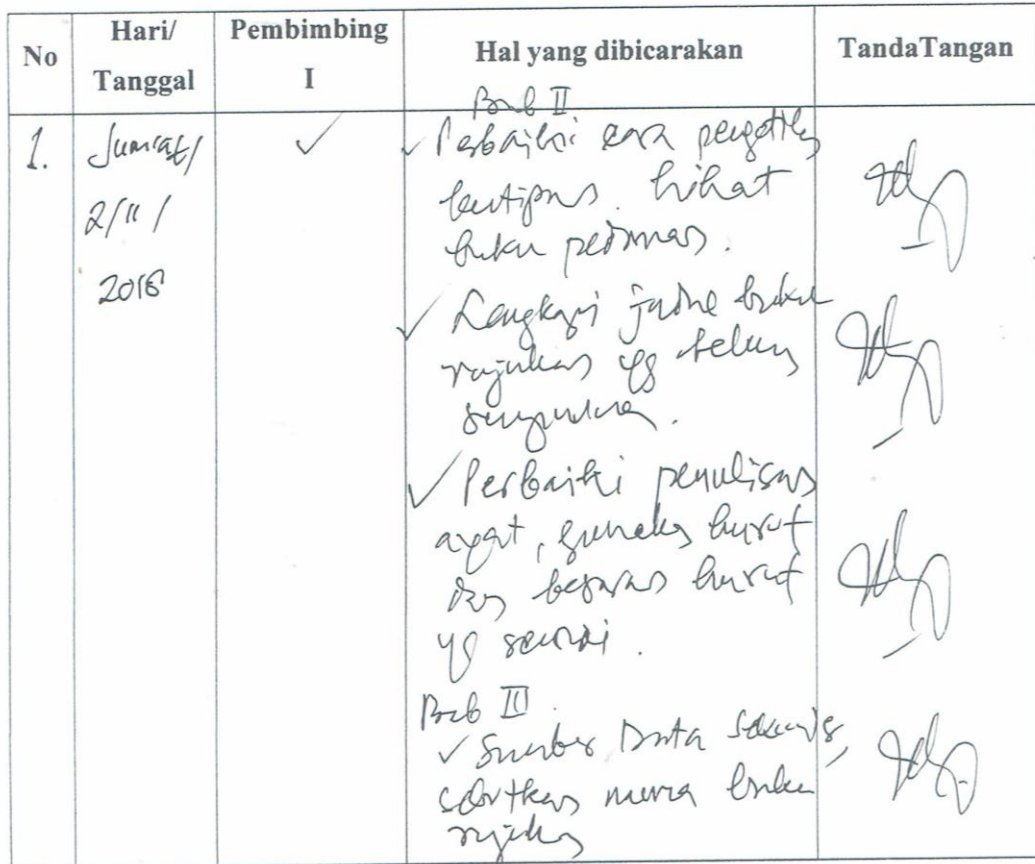 No
Hari/
Tanggal
Pembimbing
I
Hal yang dibicarakan
TandaTangan
1.
Jumat/
2/11/
2018
Bab II
✓ Perbaiki cara pengetikan
kutipan. Lihat
buku pedoman.
✓ Lengkapi judul buku
rujukan yg belum
sempurna.
✓ Perbaiki penulisan
ayat, gunakan huruf
dan besaran huruf
yg sesuai.
Bab III
✓ Sumber Data sekunder,
sebutkan nama buku
rujukan